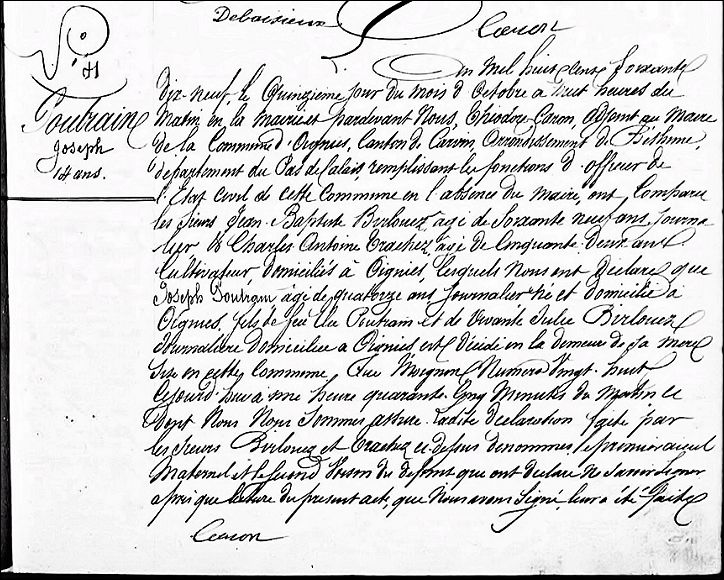 Deboisieux Caron
N° 41
Poutrain
Joseph
14 ans.
L'an Mil huit Cent Soixante
dix-neuf, le Quinzième jour du mois d'Octobre à huit heures du
Matin en la Mairie et pardevant Nous, Théodore Caron, adjoint au Maire
de la Commune d'Oignies, Canton de Carvin, Arrondissement de Béthune,
département du Pas de Calais, remplissant les fonctions d'officier de
l'Etat Civil de cette Commune en l'absence du Maire, ont Comparu
les Sieurs Jean-Baptiste Berlouez agé de Soixante neuf ans, Journa-
lier & Charles Antoine Crachez agé de Cinquante-Deux ans
Cultivateur domiciliés à Oignies, lesquels Nous ont déclaré que
Joseph Poutrain agé de quatorze ans Journalier né et domicilié à
Oignies, fils de feu Poutrain et de Vivante Julie Berlouez
Journalière domiciliée à Oignies est décédé en la demeure de Sa mère
Sise en cette Commune, Rue Numéro Vingt-huit
Cejourd'hui à une heure quarante-Cinq Minutes du Matin Ce
Dont Nous Nous Sommes assuré. Ladite Déclaration faite par
les Sieurs Berlouez et Crachez ci-dessus dénommés, le premier aieul
Maternel et le Second Voisin du défunt qui ont déclaré ne Savoir Signer
après que lecture du présent acte, que Nous avons Signé, leur a été faite
Caron